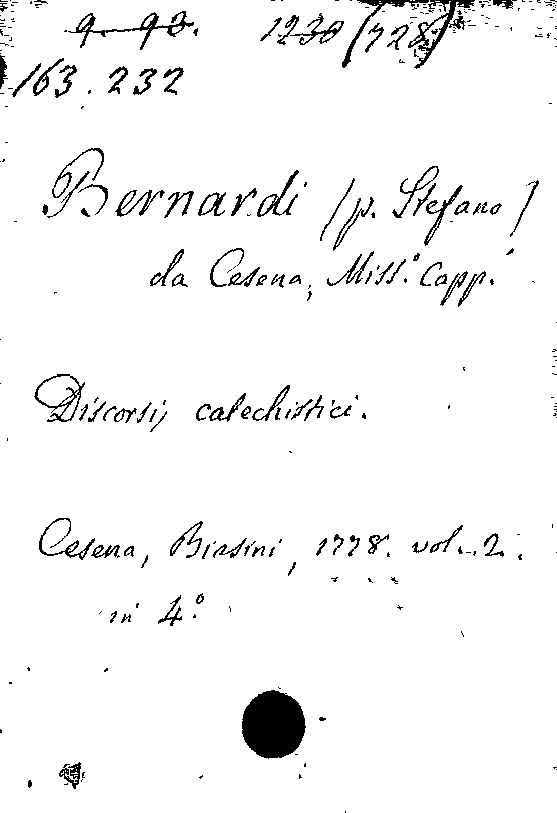 9. 93. 1230 (728)
163.232
Bernardi (p. Stefano)
da Cesena, Miss.° Capp.°
Discorsi, catechistici.
Cesena, Biasini, 1778. vol. 2.
in 4°